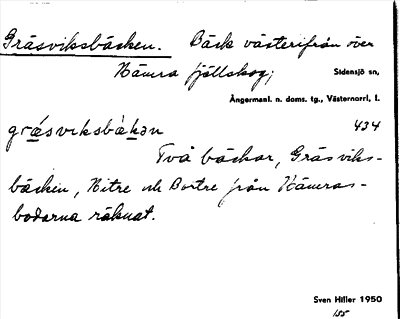 Gräsviksbäcken. Bäck västerifrån över
Hämra fjällskog;
Sidensjö sn,
Ångermanl. n. doms. tg., Västernorrl. l.
græ̀svɩksbàkən 434
Två bäckar, Gräsviks-
bäcken, Hitre och Bortre från Hämras-
bodarna räknat.
Sven Hiller 1950
155